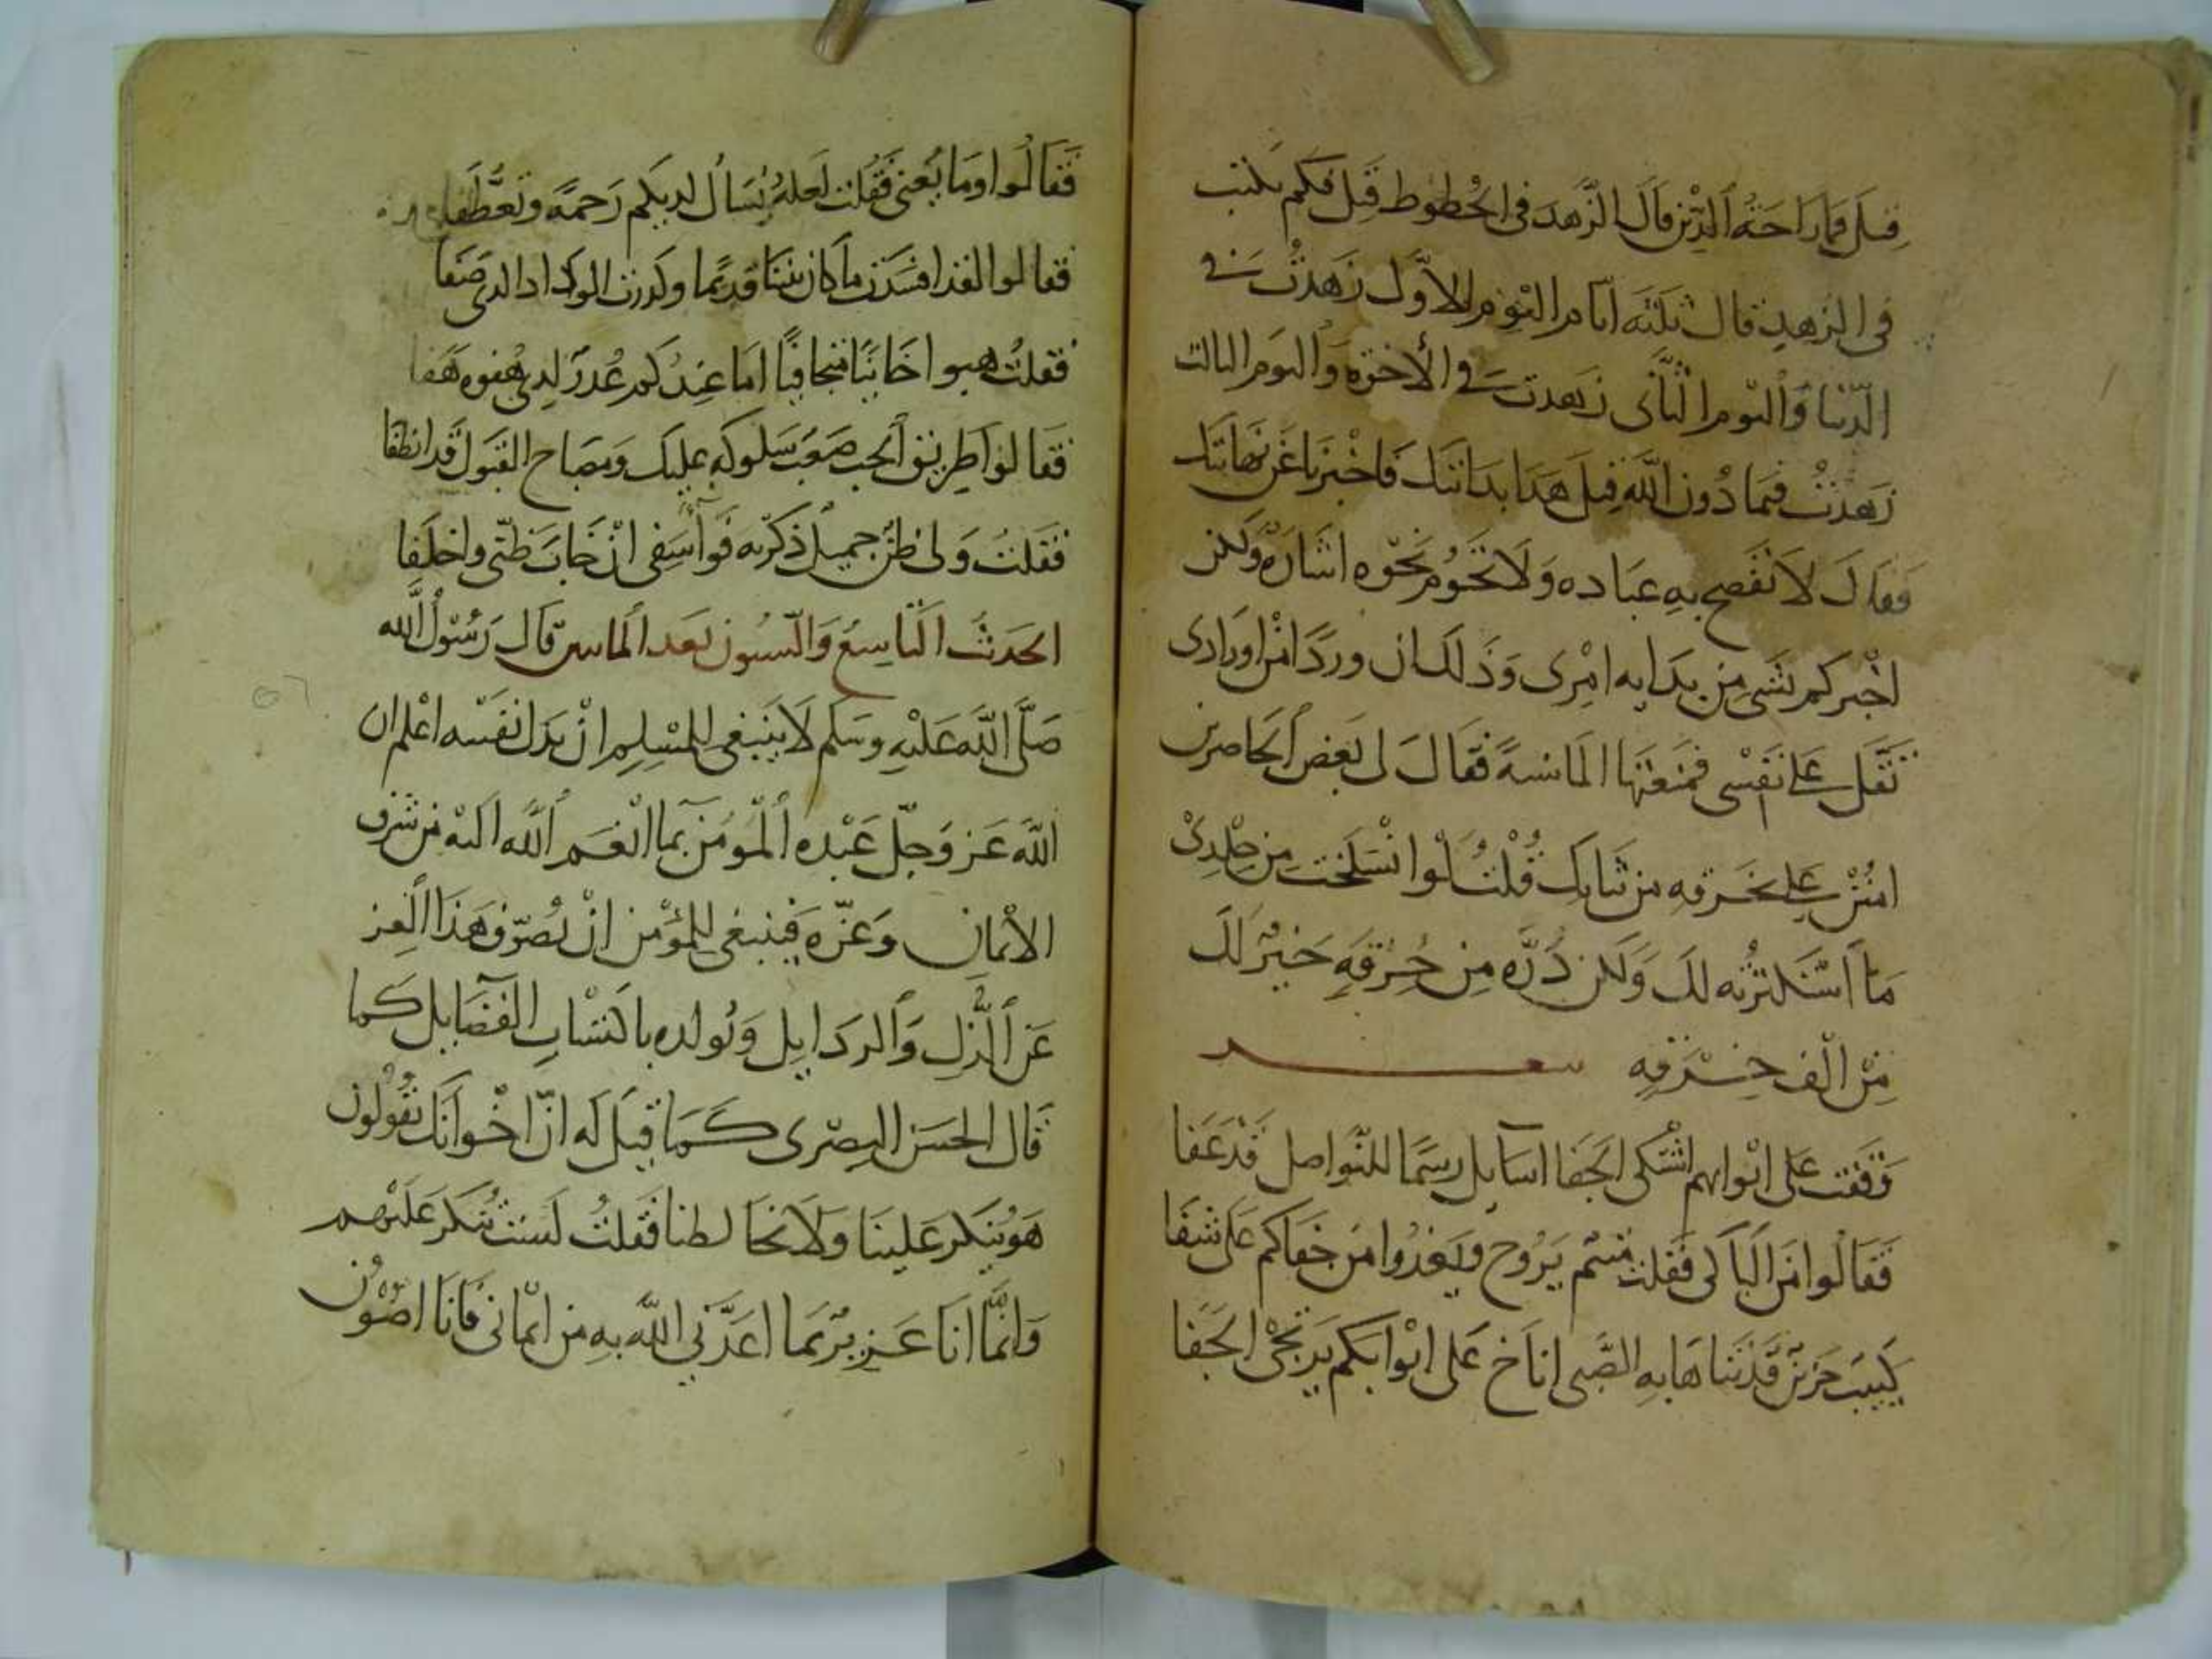 قيل فما راحة الدين قال الزهد في الحظوظ قيل فكم بلثت
في الزهد قال ثلثة ايام اليوم الاول زهدت في
الدنيا واليوم الثاني زهدت في الاخرة واليوم الثالث
زهدت فيما دون الله قيل هذا بدايتك فاخبرنا عن نهايتك
فقال لا تفصح به عباده ولا تحوم نحوه اشاره ولكن
اخبركم بشي من بدايه امري وذلك ان وردا من اورادي
ثقل على نفسي فمنعتها الما سنة فقال لي بعض الحاضرين
امنن علي بخرقه من ثيابك قلت لو انسلخت من جلدي
ما استكثرته لك ولكن ذره من حرقه خير لك
من الف خرقه شعر
وقفت على ابوابهم اشتكى الجفا اسايل رسما للتواصل قد عفا
فقالوا من الباكي فقلت متيم يروح ويغدوا من جفاكم على شفا
كييب حزين قد تناها به الضنى اناخ على ابوابكم يرتجى الجفا
فقالوا وما يعنى فقلت لعله يسأل لديكم رحمة وتعطفا
فقالوا لقد افسدت ما كان بيننا قديما وكدرت الوداد الذي صفا
فقلت هبوا خاينا متجافيا اما عندكم عذر لذي هفوه هفا
فقالوا طريق الحب صعب سلوكه عليك ومصباح القبول قد انطفا
فقلت ولي ظن جميل ذكرته فوا اسفى ان خاب ظني واخلفا
الحديث التاسع والستون بعد الماتين قال رسول الله
صلى الله عليه وسلم لا ينبغي للمسلم ان يذل نفسه اعلم ان
الله عز وجل عبده المومن بما انعم الله اليه من شرف
الايمان وعزه فينبغي للمؤمن ان يصرف هذا العز
عن الذل والرذايل وتولده باكتساب الفضايل كما
قال الحسن البصرى كما قيل له ان اخوانك يقولون
هو يتكبر علينا ولا يخالطنا فقلت لست بتكبر عليهم
وانما انا عزيز بما اعزني الله به من ايماني فانا اصون